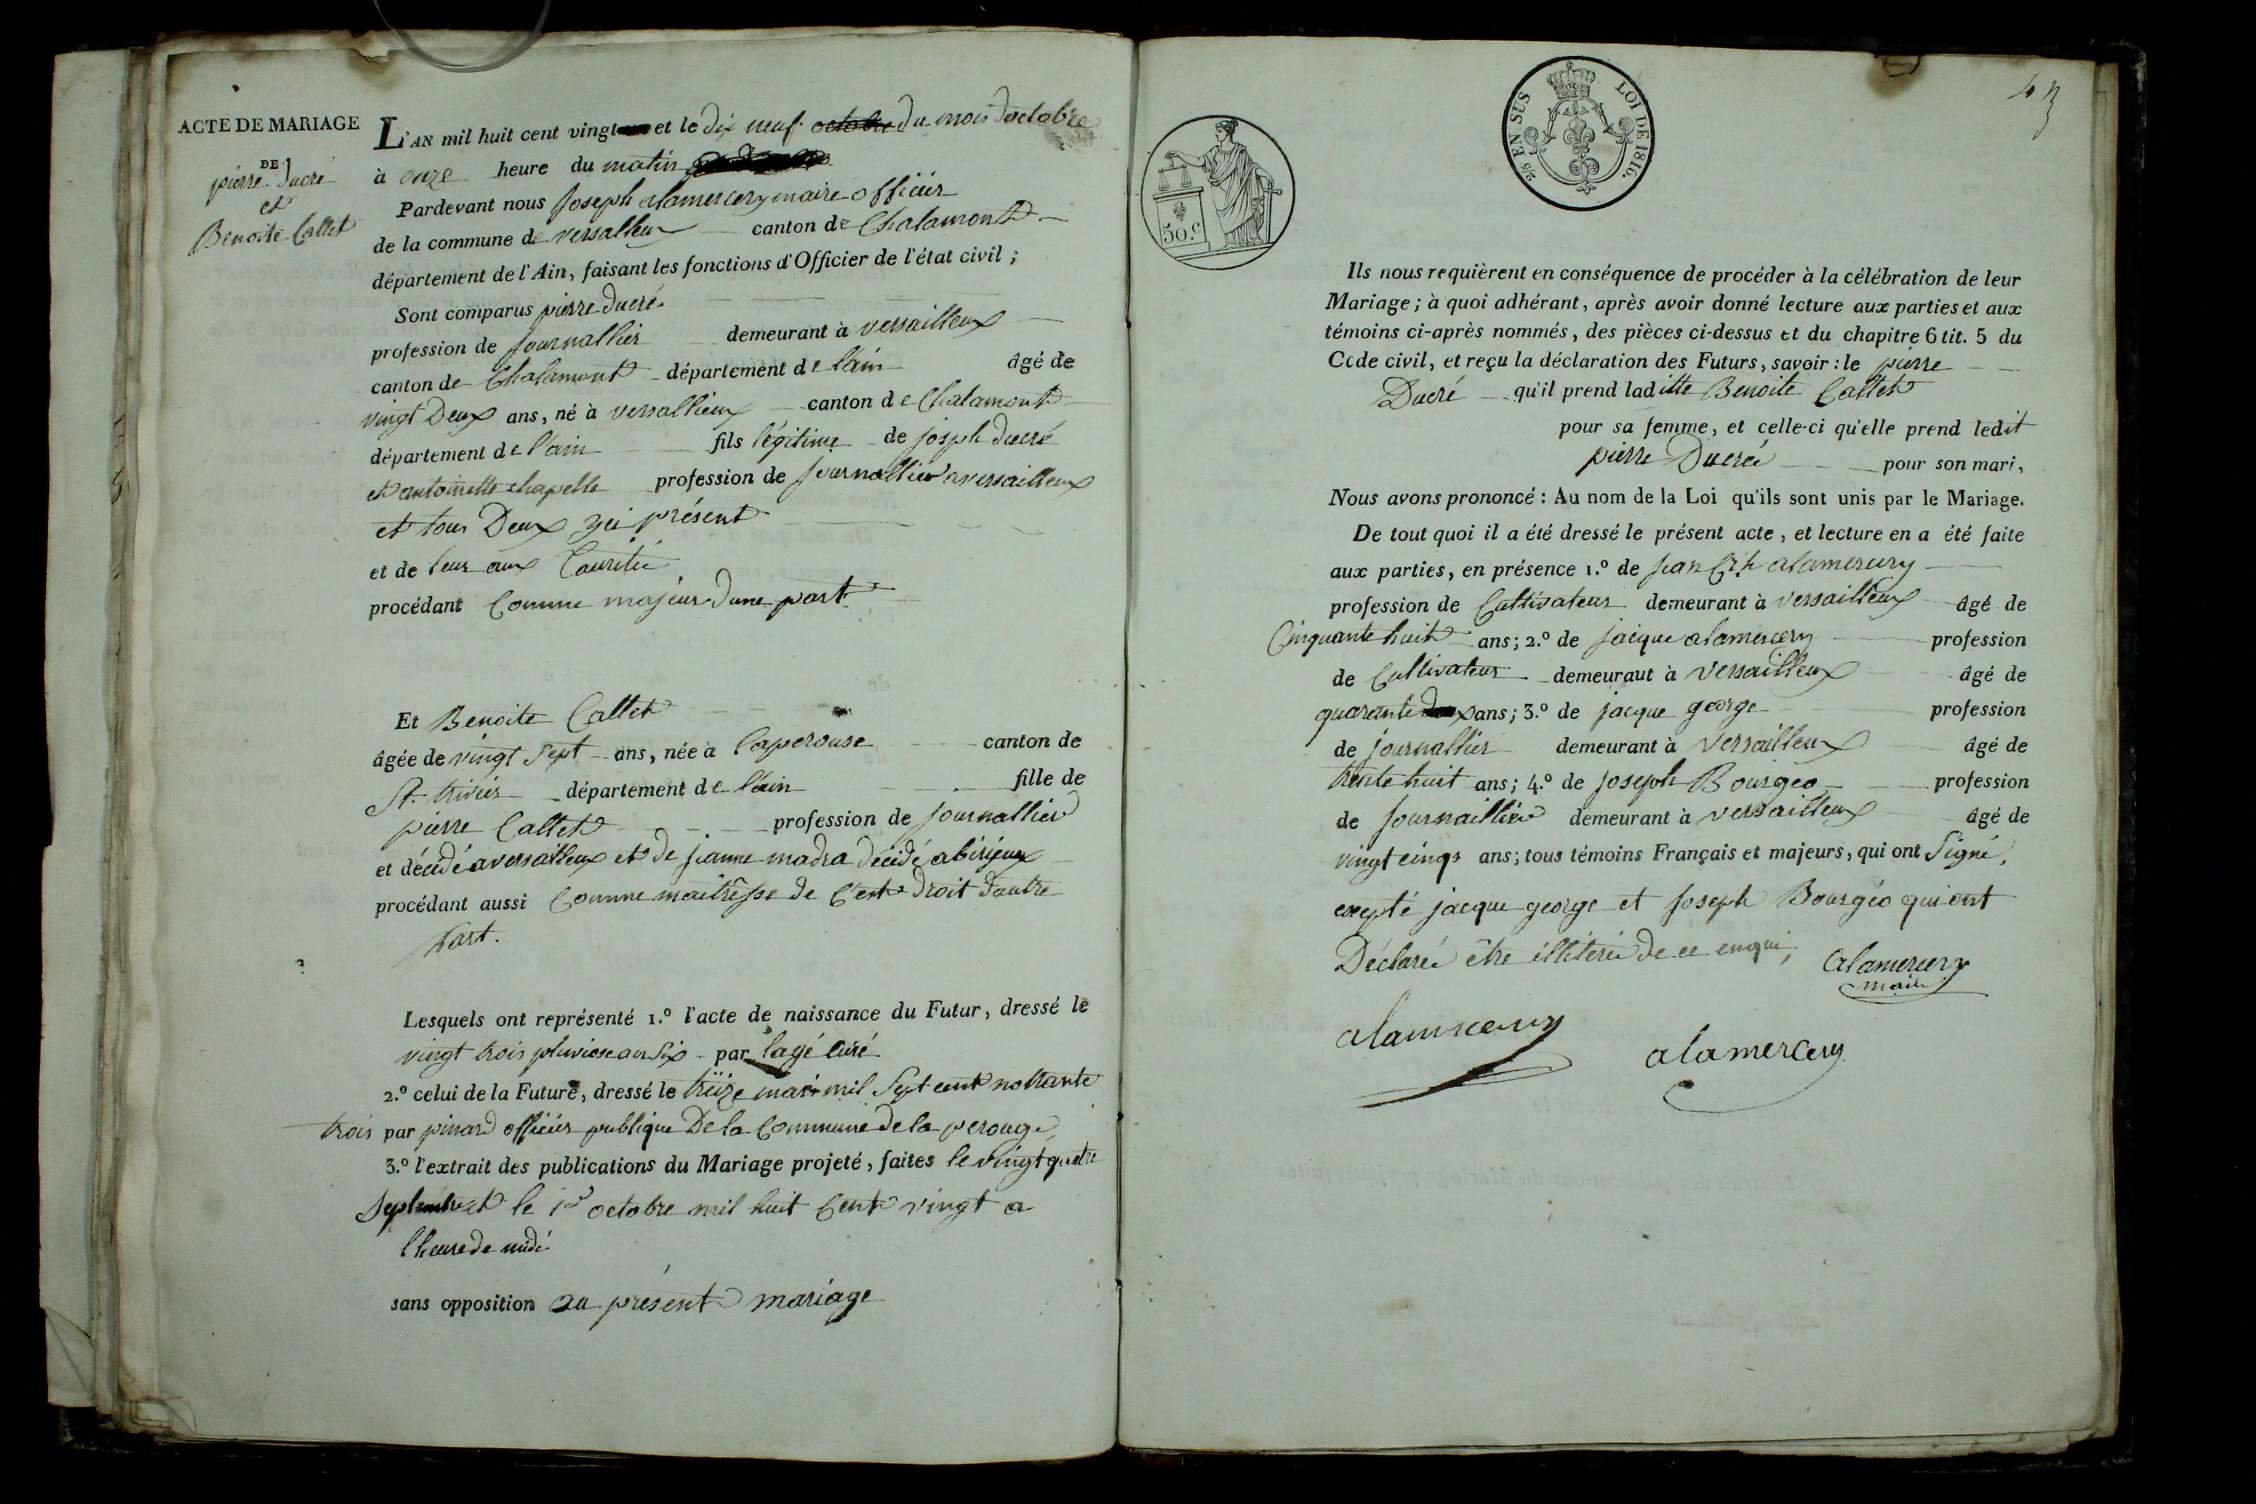 ACTE DE MARIAGE
DE
pierre Ducré
et
Benoite Callet
L'AN mil huit cent vingt et le dix neuf octobre du mois doctobre
à onze heure du matin
Pardevant nous Joseph alamercery maire officier
de la commune de versalleux canton de Chalamont
département de l'Ain, faisant les fonctions d'Officier de l'état civil ;
Sont comparus pierre ducré
profession de Journallier demeurant à versailleux
canton de Chalamont département de lain âgé de
vingt Deux ans, né à versallieux canton de Chalamont
département de lain fils légitime de joseph ducré
et antoinette chapelle profession de Journallier aversailleux
et tous Deux yci présent
et de leur aux
procédant Comme majeur dune part
Et Benoite Callet
âgée de vingt Sept ans, née à laperouse canton de
St. trivier département de lain fille de
pierre Callet profession de Journallier
et décidé aversailleux et de jeanne madra décidé abirieux
procédant aussi Comme maitresse de C'est droit dautre
part.
Lesquels ont représenté 1.º l'acte de naissance du Futur, dressé le
vingt trois pluviose an Six par lagé curé
2.º celui de la Future, dressé le treize mars mil Sept cent nottante
trois par pinard officier publique De la Commune de la perouge
3.º l'extrait des publications du Mariage projeté, faites le vingt quatre
Septembre et le 1er octobre mil huit Cent vingt a
lheure de midi
sans opposition au présent mariage
43
2/5 EN SUS LOI DE 1816.
50.c
Ils nous requièrent en conséquence de procéder à la célébration de leur
Mariage ; à quoi adhérant, après avoir donné lecture aux parties et aux
témoins ci-après nommés, des pièces ci-dessus et du chapitre 6 tit. 5 du
Code civil, et reçu la déclaration des Futurs, savoir : le pierre
Ducré qu'il prend laditte Benoite Callet
pour sa femme, et celle-ci qu'elle prend ledit
pierre Ducré pour son mari,
Nous avons prononcé : Au nom de la Loi qu'ils sont unis par le Mariage.
De tout quoi il a été dressé le présent acte, et lecture en a été faite
aux parties, en présence 1.º de jean alamercery
profession de Cultivateur demeurant à versailleux âgé de
Cinquante huit ans ; 2.º de jacque alamercery profession
de Cultivateur demeuraut à versailleux âgé de
quarante ans ; 3.º de jacque george profession
de journallier demeurant à versailleux âgé de
trente huit ans ; 4.º de Joseph Bourgeo profession
de Journaillier demeurant à versailleux âgé de
vingt cinqs ans ; tous témoins Français et majeurs, qui ont Signé,
exepté jacque george et Joseph Bourgéo qui ont
Déclaré être illiteré de ce enqui,
alamercery
maire
alamercery
alamercery